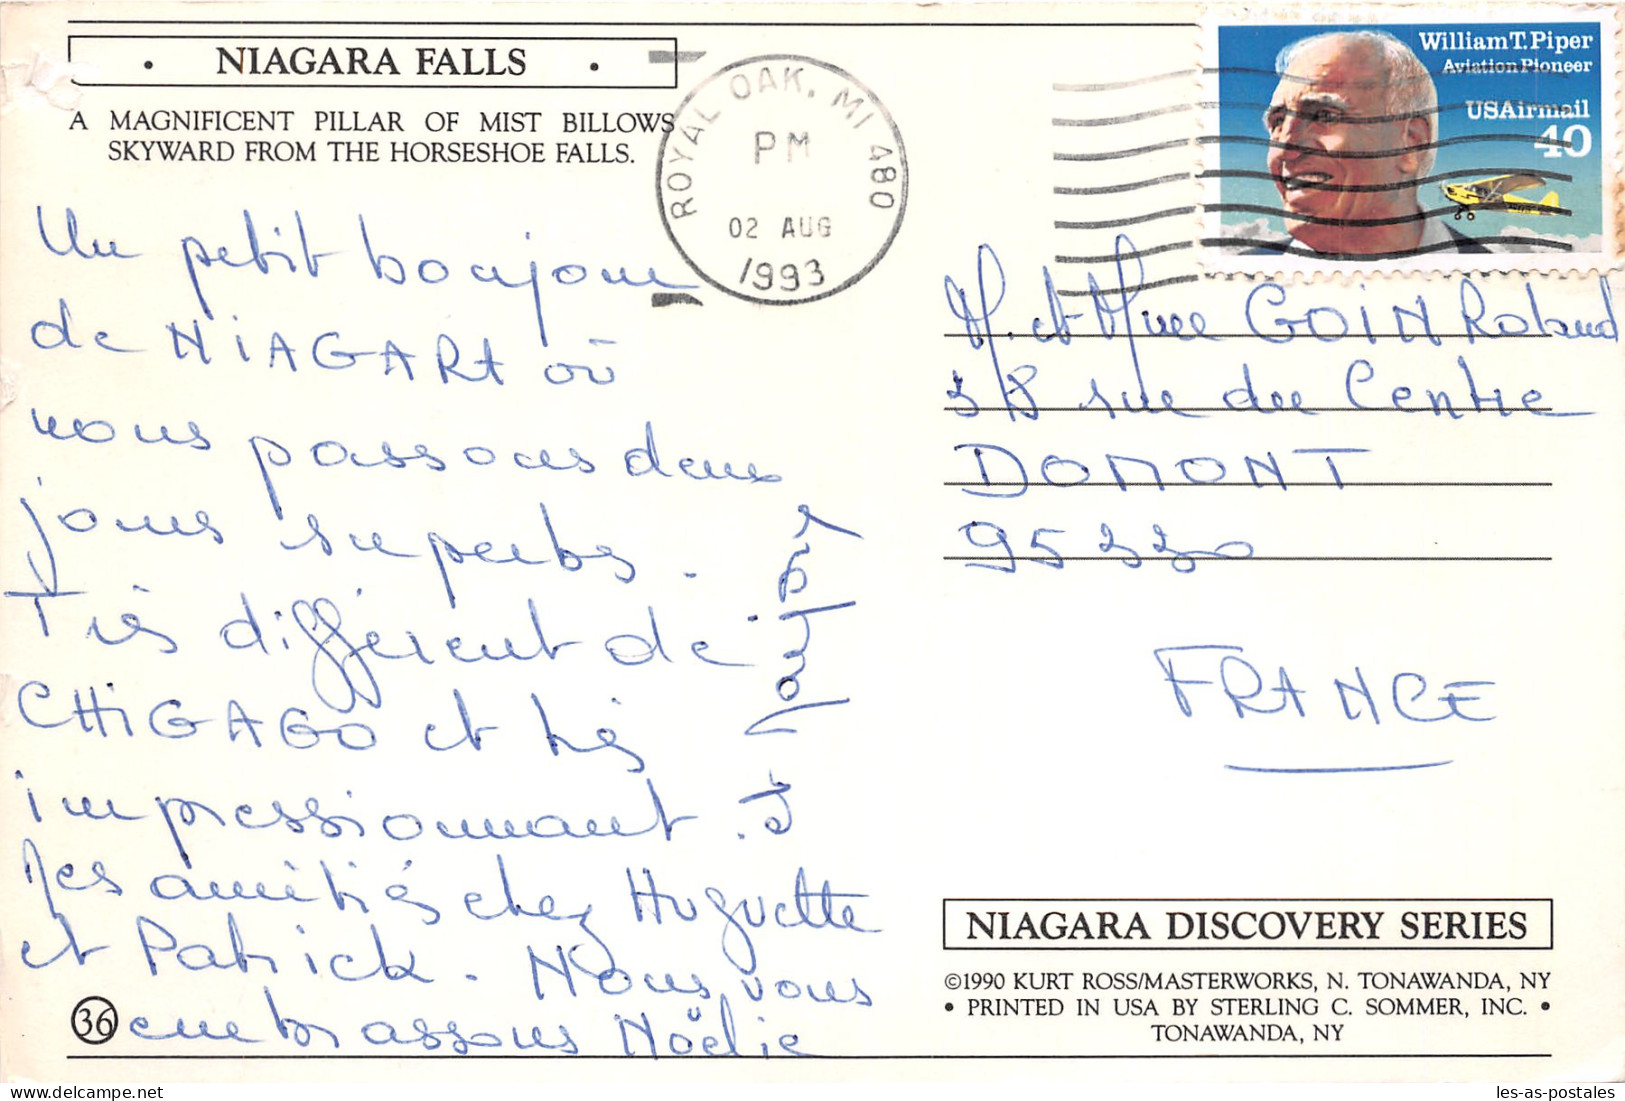 NIAGARA FALLS
A MAGNIFICENT PILLAR OF MIST BILLOWS
SKYWARD FROM THE HORSESHOE FALLS.
Un petit boujour
de NIAGARA où
nous passons deux
jours superbes.
Très différent de
CHIGAGO et très
impressionnant.
Mes amitiés chez Huguette
et Patrick. Nous vous
embrassons Noëlie
36
ROYAL OAK, MI 480
PM
02 AUG
1993
William T. Piper
Aviation Pioneer
USAirmail
40
M. et Mme GOIN Roland
38 rue du Centre
DOMONT
95330
FRANCE
NIAGARA DISCOVERY SERIES
©1990 KURT ROSS/MASTERWORKS, N. TONAWANDA, NY
• PRINTED IN USA BY STERLING C. SOMMER, INC. •
TONAWANDA, NY
les-as-postales